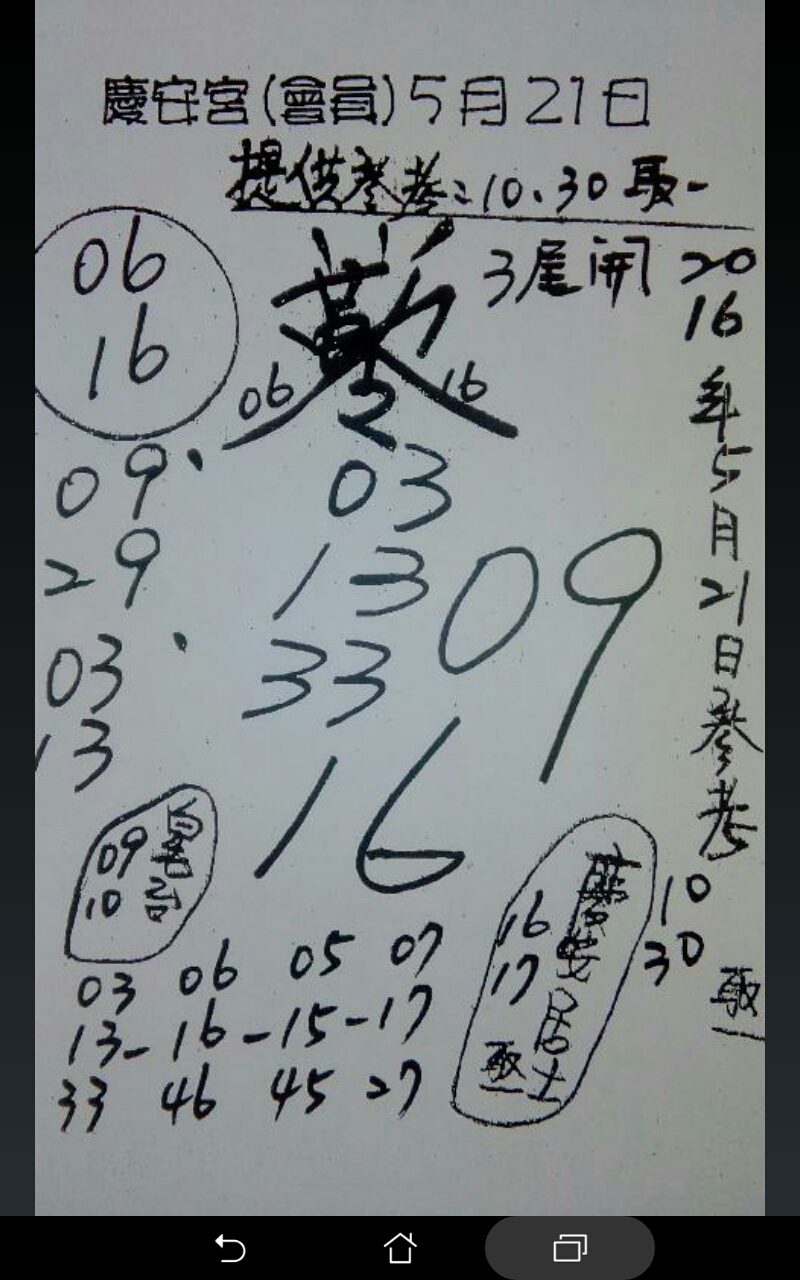 慶安宮(會員)5月21日
提供參考:10、30取一
3尾開
06
16
06
16
09
29
03
13
03
13
33
09
16
2016年5月21日參考
10
30
取一
09
10
16
17
慶安居士
取一
03 06 05 07
13-16-15-17
33 46 45 27